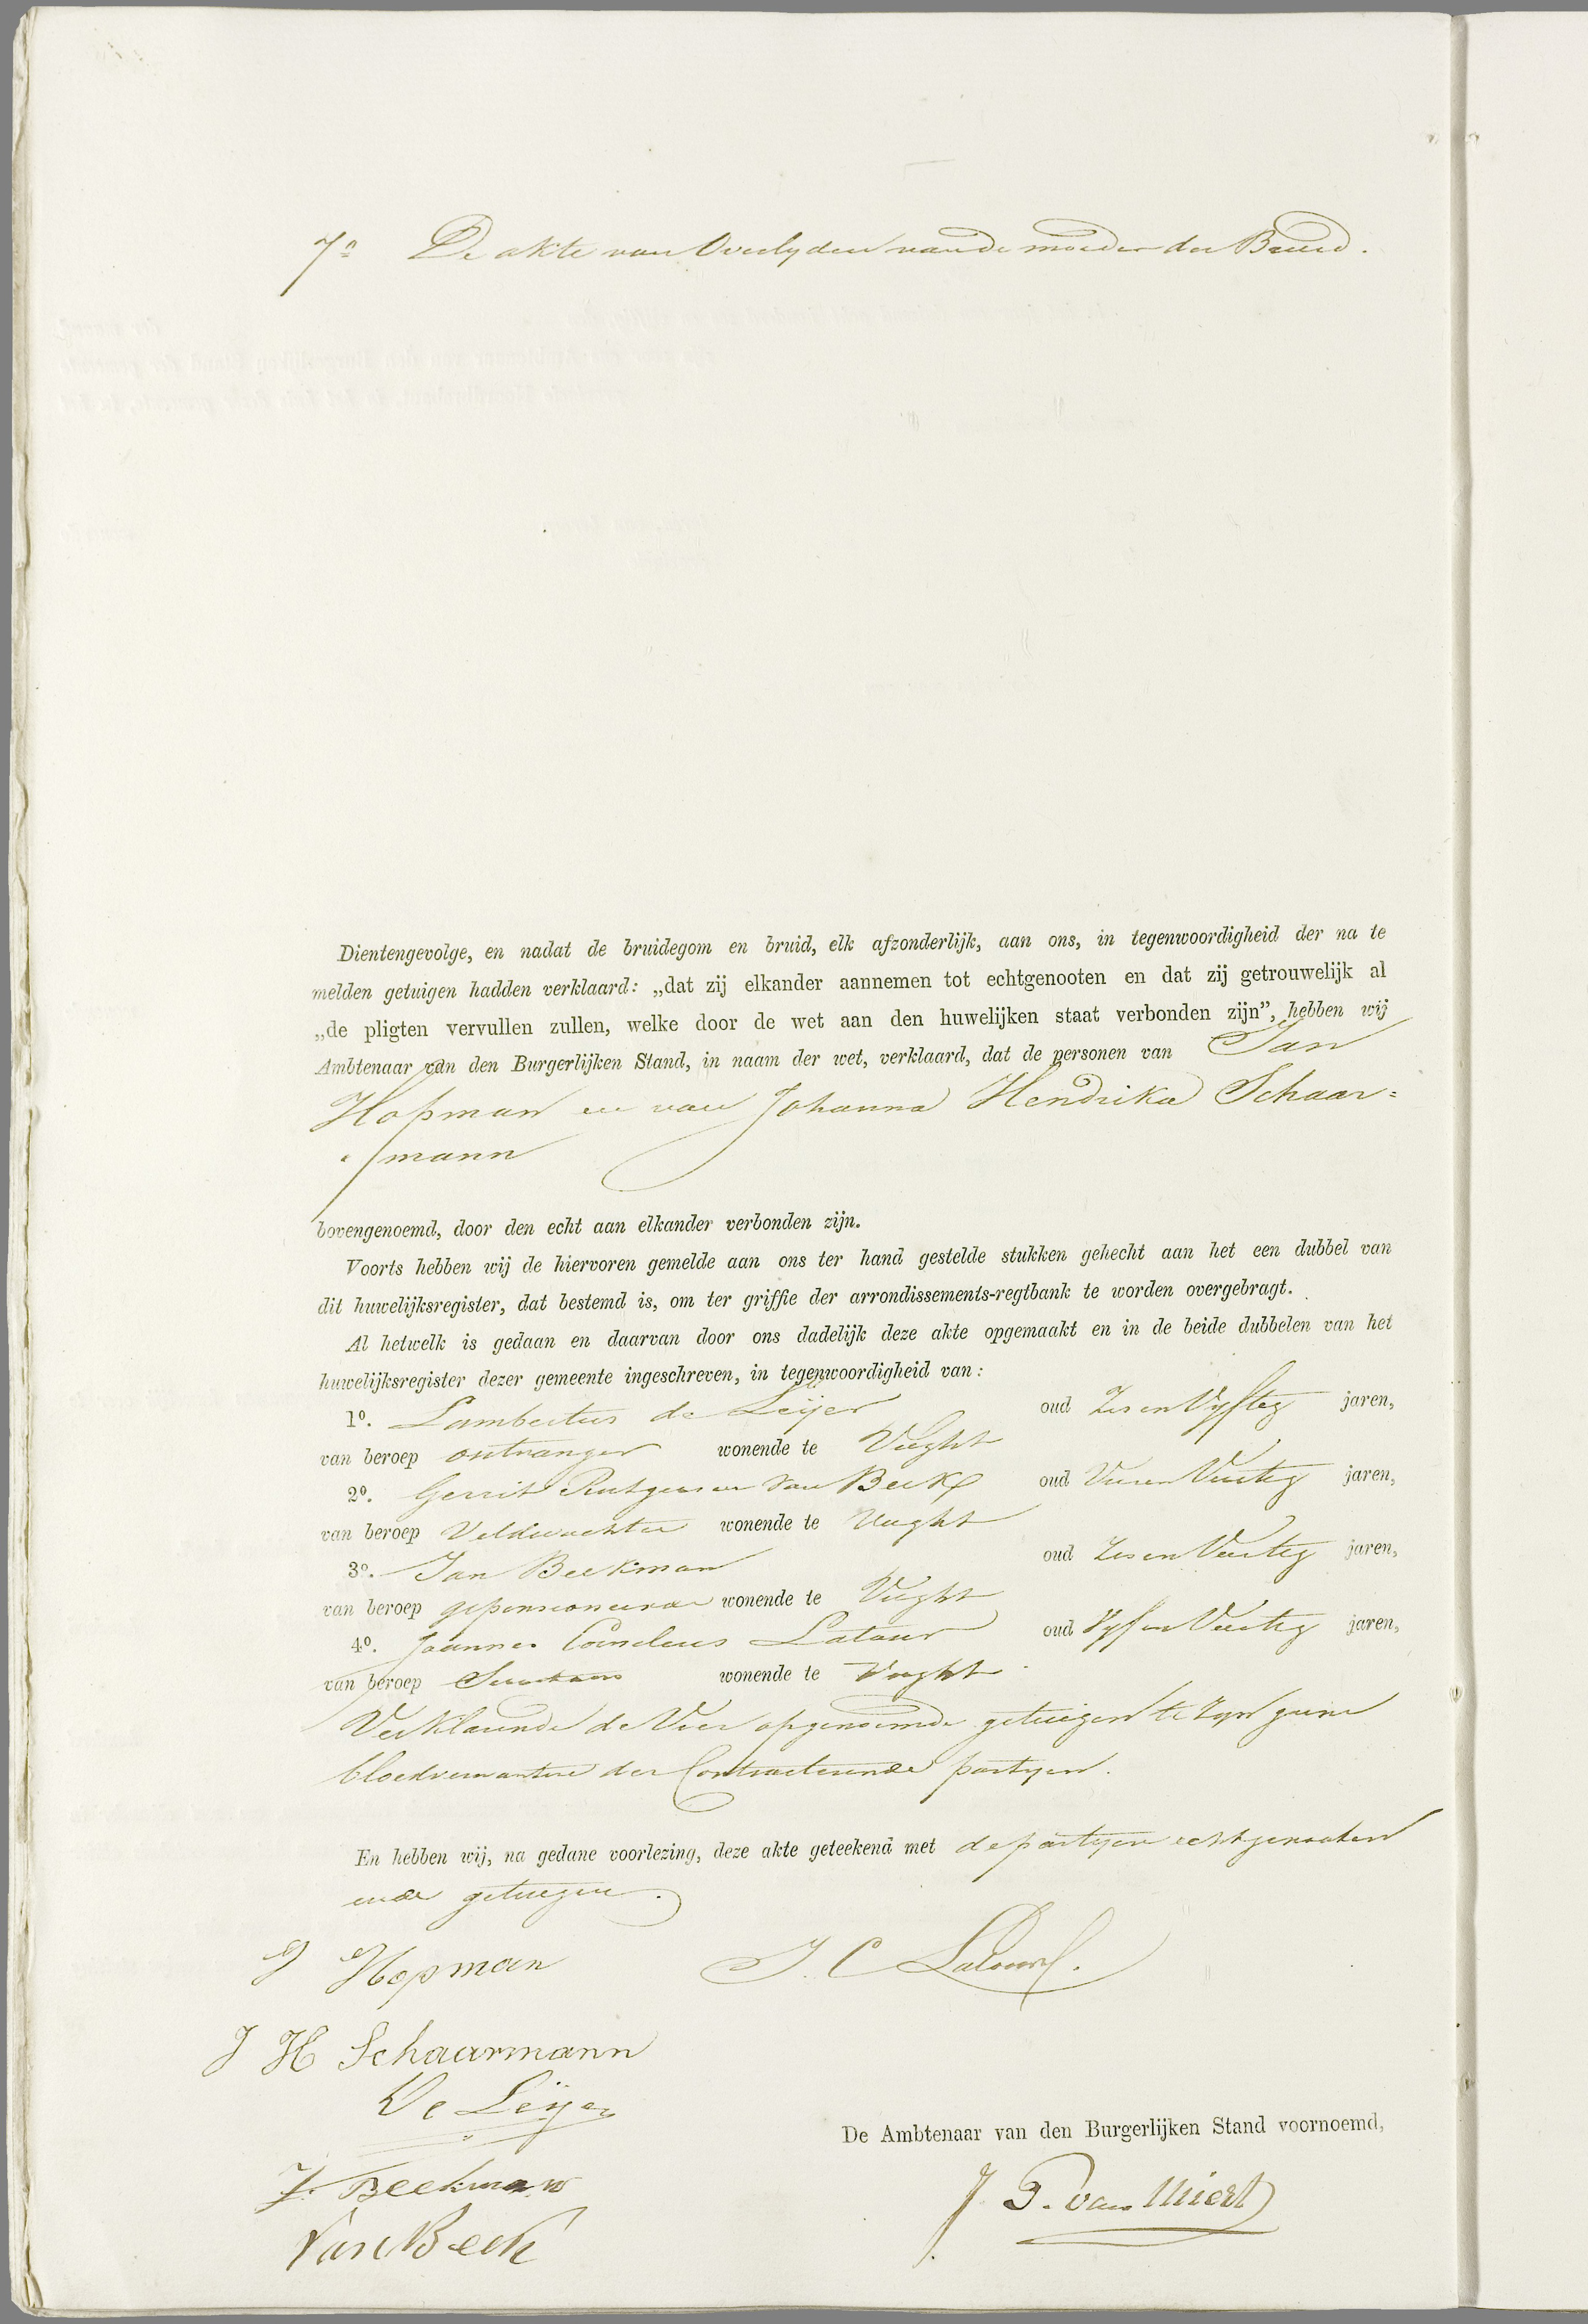 7º De akte van Overlyden van de moeder der Bruid.
Dientengevolge, en nadat de bruidegom en bruid, elk afzonderlijk, aan ons, in tegenwoordigheid der na te
melden getuigen hadden verklaard: „dat zij elkander aannemen tot echtgenooten en dat zij getrouwelijk al
„de pligten vervullen zullen, welke door de wet aan den huwelijken staat verbonden zijn”, hebben wij
Ambtenaar van den Burgerlijken Stand, in naam der wet, verklaard, dat de personen van Jan
Hopman en van Johanna Hendrika Schaar=
mann
bovengenoemd, door den echt aan elkander verbonden zijn.
Voorts hebben wij de hiervoren gemelde aan ons ter hand gestelde stukken gehecht aan het een dubbel van
dit huwelijksregister, dat bestemd is, om ter griffie der arrondissements-regtbank te worden overgebragt.
Al hetwelk is gedaan en daarvan door ons dadelijk deze akte opgemaakt en in de beide dubbelen van het
huwelijksregister dezer gemeente ingeschreven, in tegenwoordigheid van:
1º. Lambertus de Leijer oud Zes en Vyftig jaren,
van beroep ontvanger wonende te Vught
2º. Gerrit Rutgers van Beek oud Vier en Veertig jaren,
van beroep Veldwachter wonende te Vught
3º. Jan Beekman oud Zes en Veertig jaren,
van beroep gepensioneerde wonende te Vught
4º. Joannes Cornelius Latour oud Vyf en Veertig jaren,
van beroep wonende te Vught
Verklarende de Vier opgenoemde getuigen te zyn geene
bloedverwanten der Contracterende partyen.
En hebben wij, na gedane voorlezing, deze akte geteekend met de partyen echtgenooten
en de getuigen.
J Hopman J. C Latour.
J H Schaarmann
De Leijer
J. Beekman
Van Beek
De Ambtenaar van den Burgerlijken Stand voornoemd,
J. P. van Miert